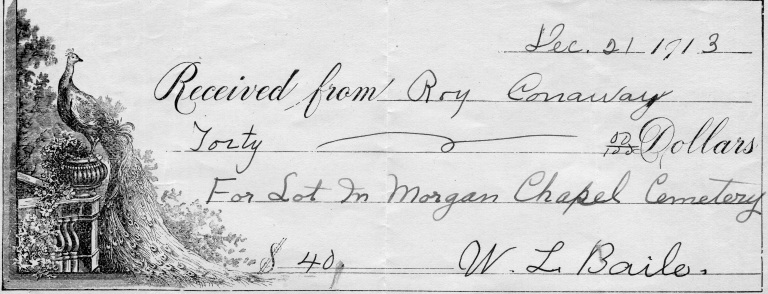 Dec. 21 1913
Received from Roy Conaway
Forty 00/100 Dollars
For Lot In Morgan Chapel Cemetery
$ 40, W. L. Baile.